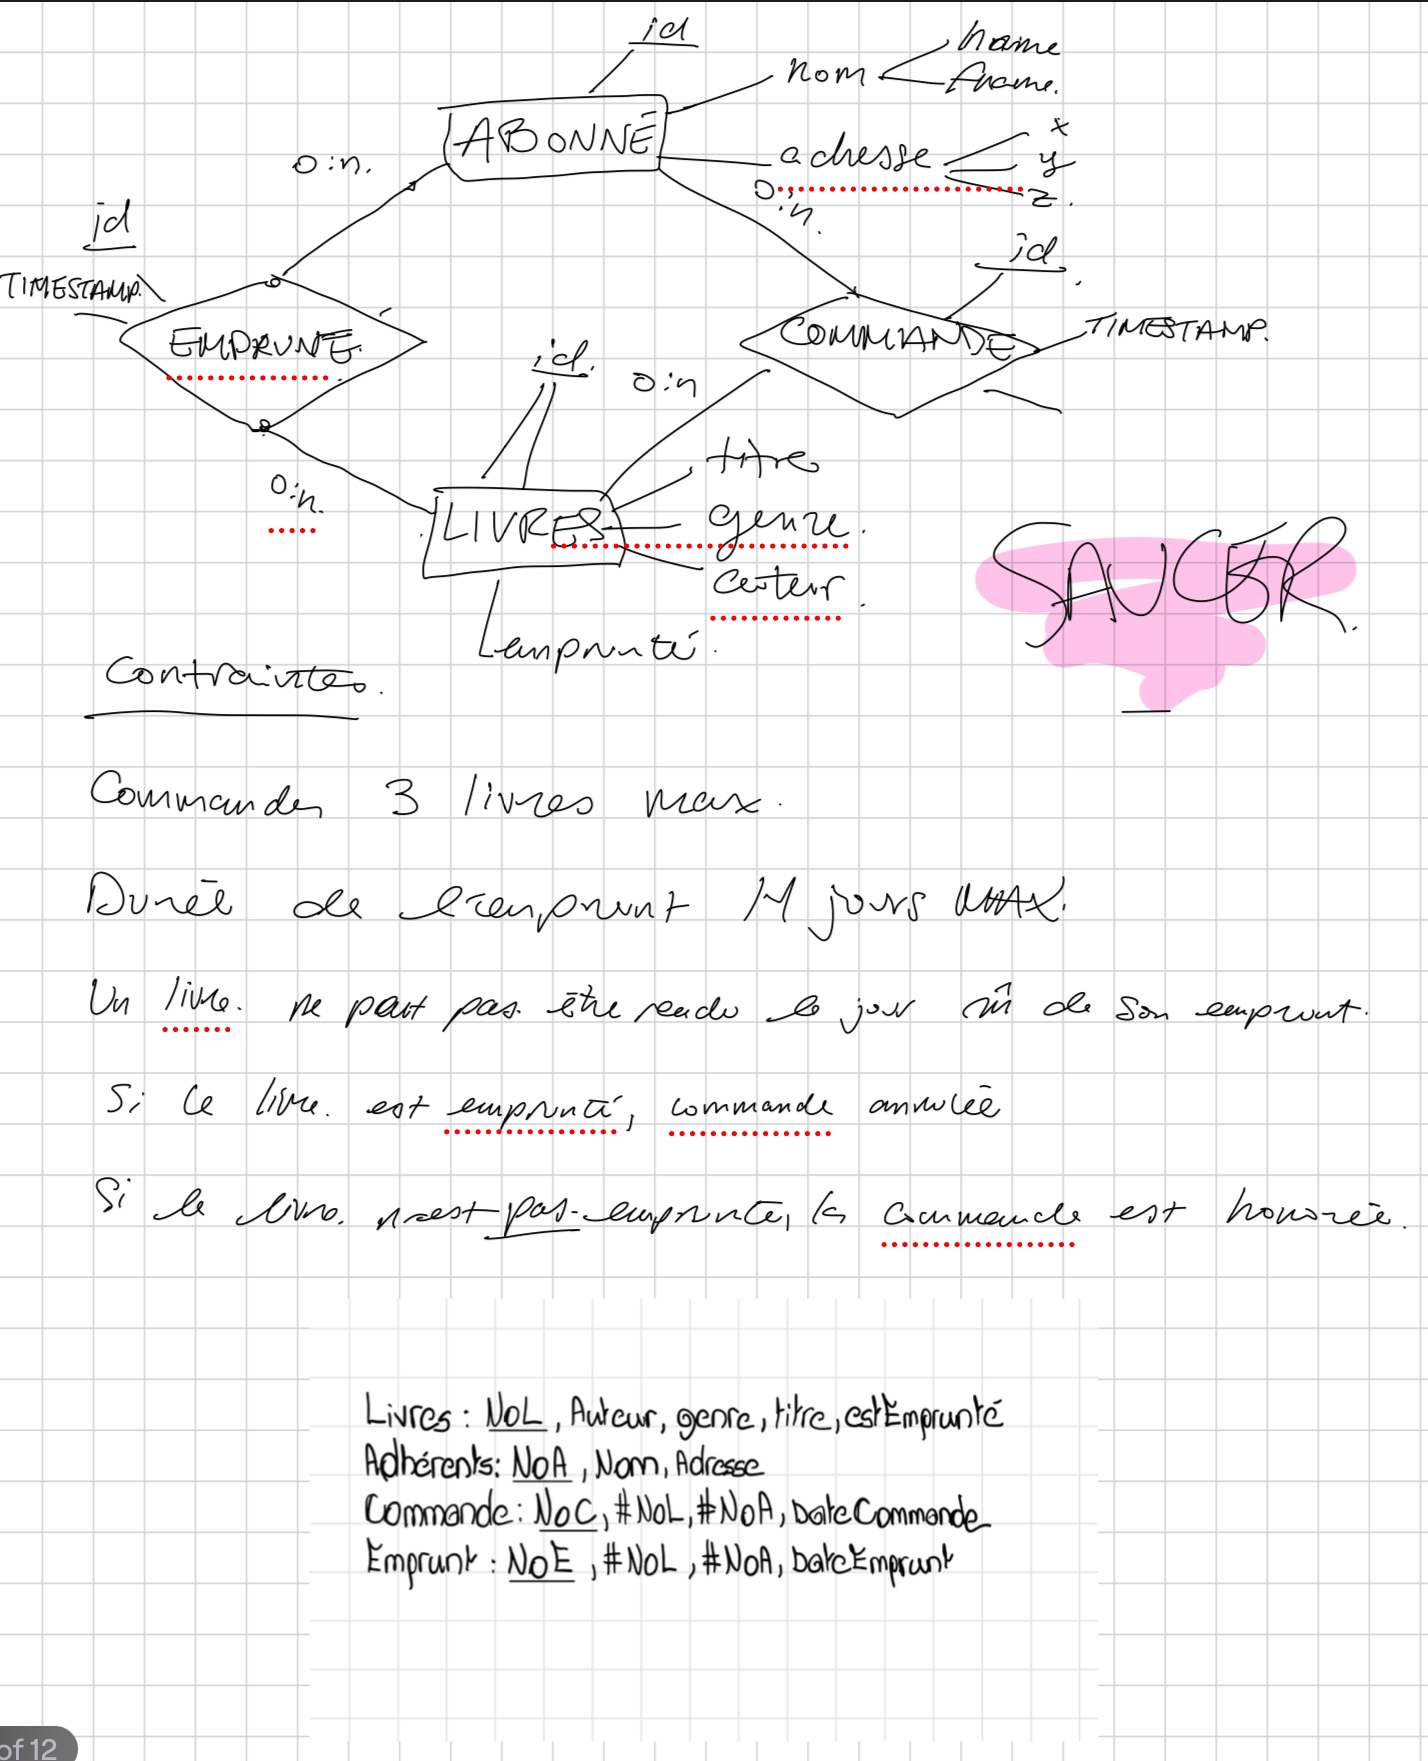 id
name
nom
fname.
ABONNÉ
x
adresse
y
z.
0:n.
0:n.
id
id
TIMESTAMP.
EMPRUNTE.
COMMANDE
TIMESTAMP.
id.
0:n
titre
0:n.
LIVRES
genre.
auteur.
SAUCER.
emprunté.
Contraintes.
Commander 3 livres max.
Durée de l'emprunt 14 jours MAX.
Un livre. ne peut pas être rendu le jour m̂ de son emprunt.
Si le livre. est emprunté, commande annulée
Si le livre. n'est pas emprunté, la commande est honorée.
Livres : NoL, Auteur, genre, titre, estEmprunté
Adhérents: NoA, Nom, Adresse
Commande: NoC, #NoL, #NoA, DateCommande
Emprunt : NoE, #NoL, #NoA, DateEmprunt
of 12